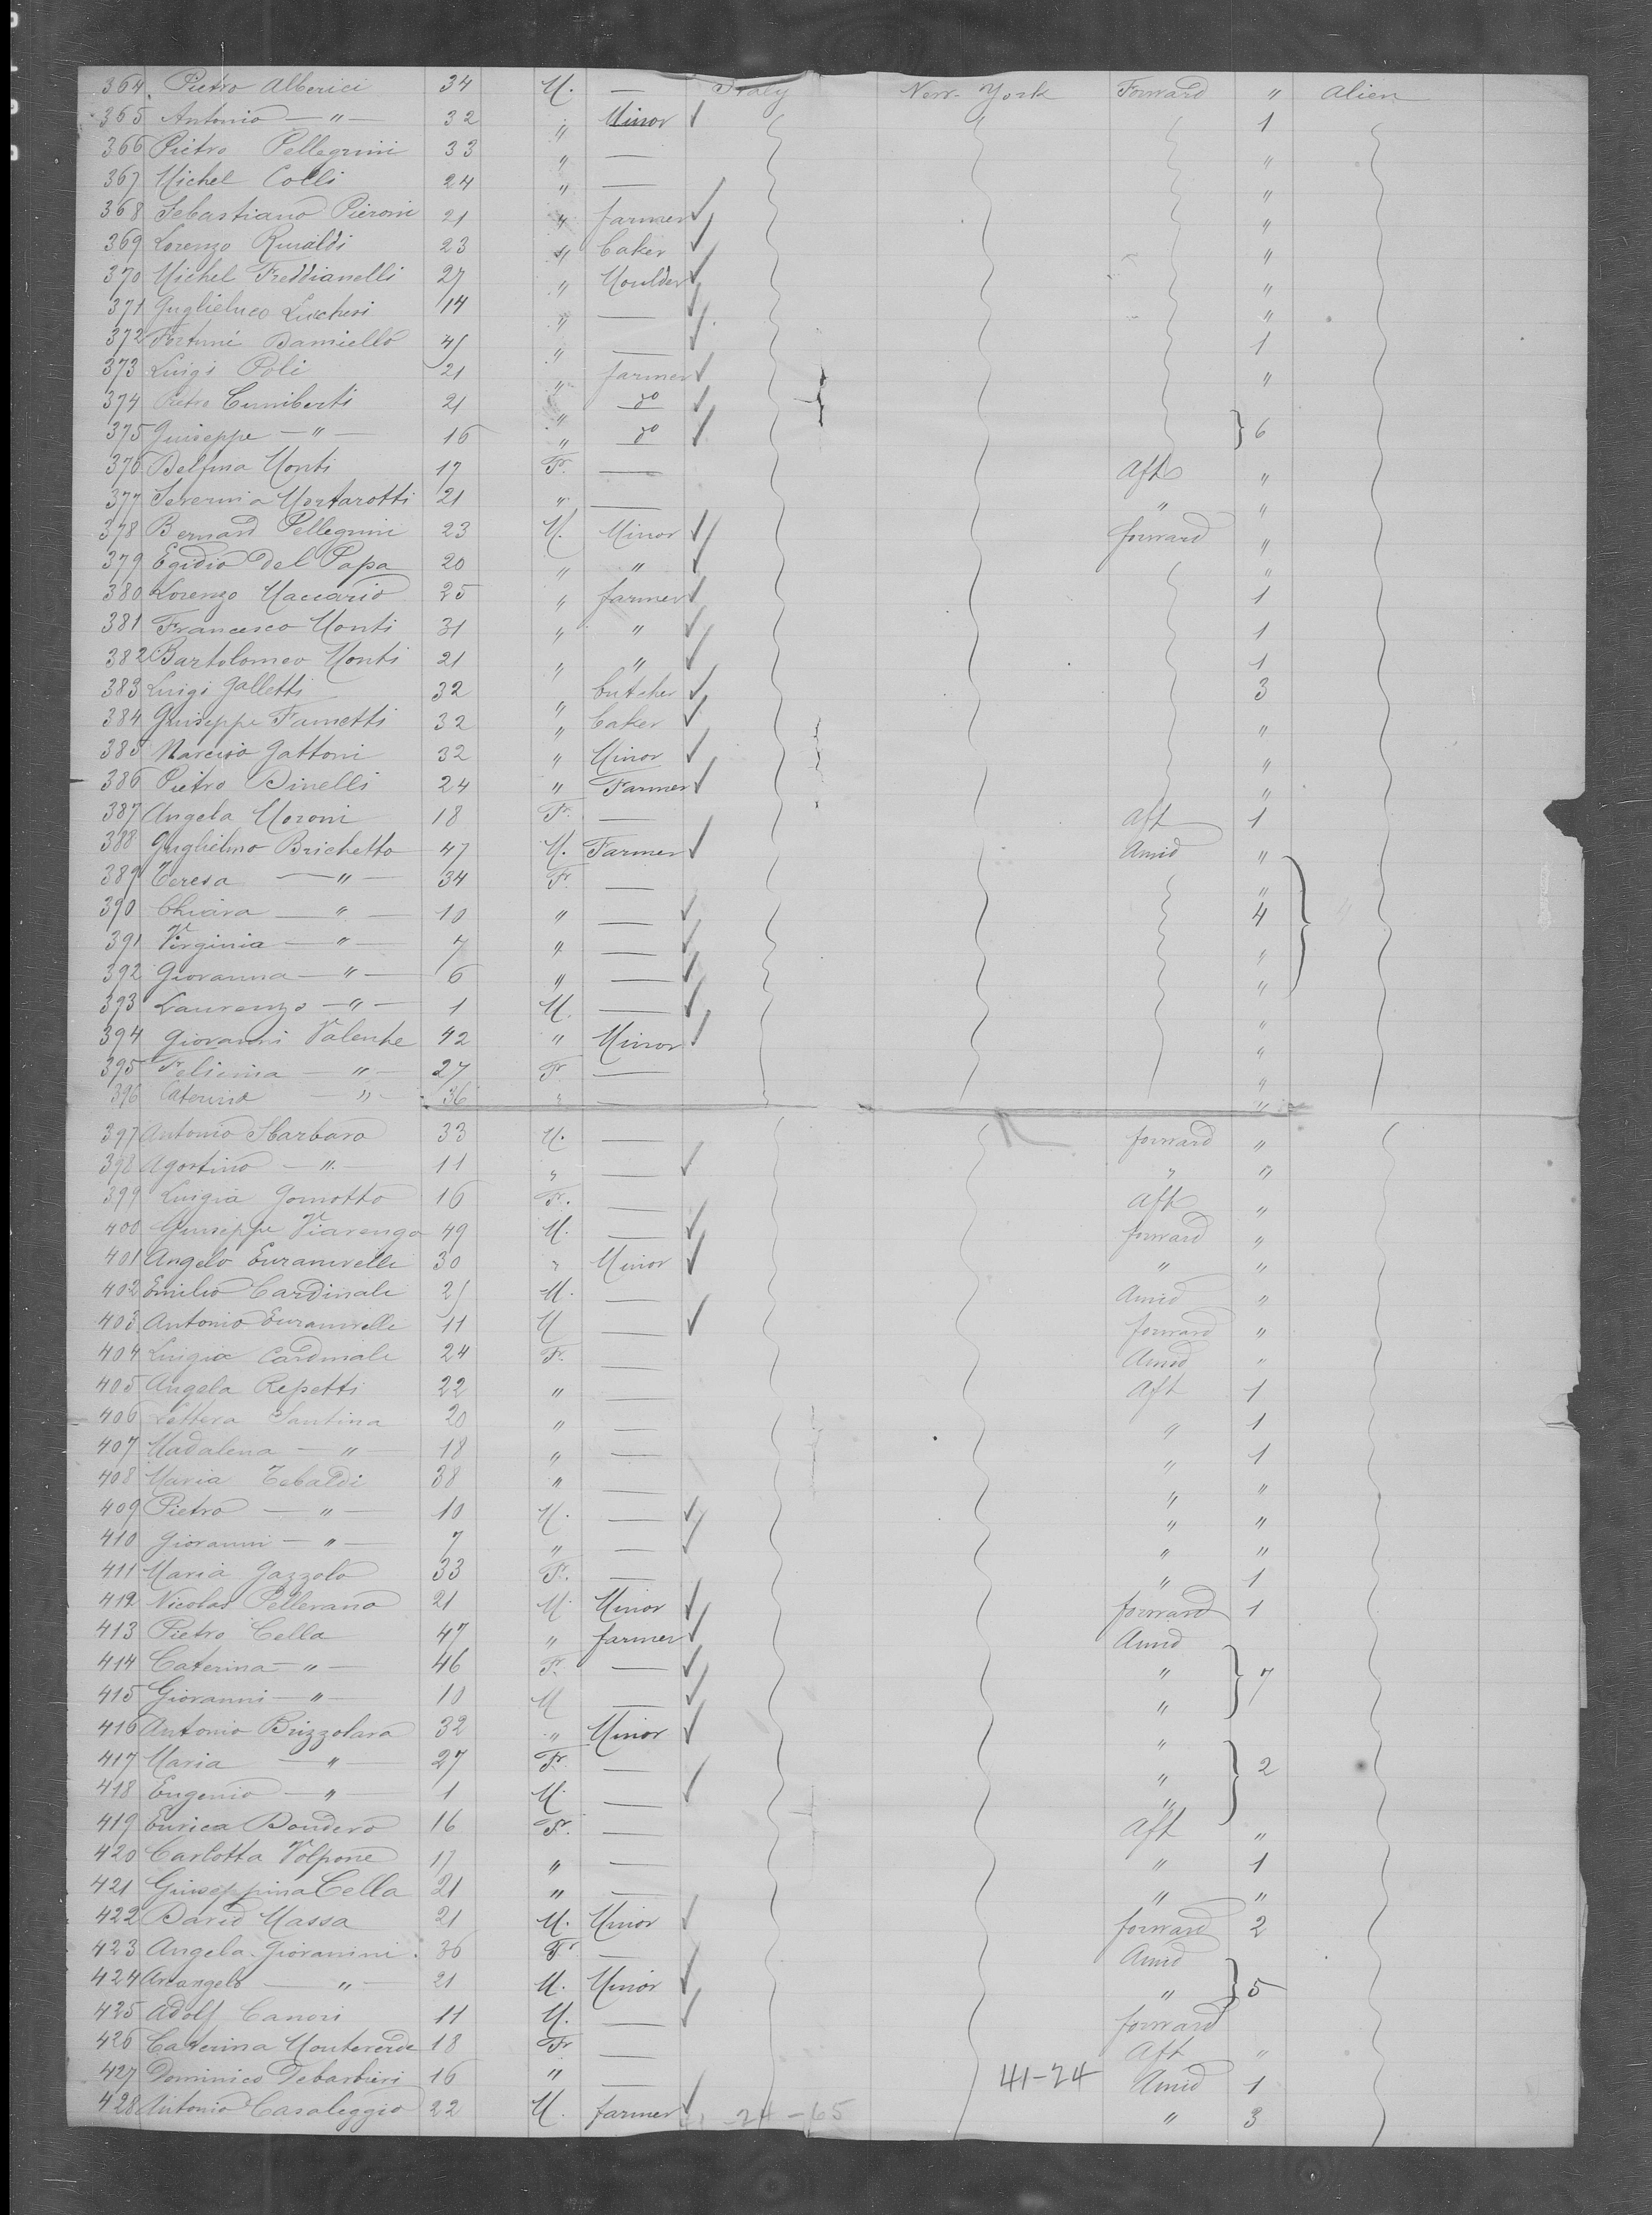 364 Pietro Alberici 34 M. — Italy New-York Forward " Alien
365 Antonio — " — 32 " Minor 1
366 Pietro Pellegrini 33 " — "
367 Michel Colli 24 " — "
368 Sebastiano Pieroni 21 " farmer "
369 Lorenzo Rinaldi 23 " baker "
370 Michel Freddianelli 27 " Moulder "
371 Guglielmo Luchesi 14 " — "
372 Fortuni Damiello 45 " — 1
373 Luigi Poli 21 " farmer "
374 Pietro Cuniberti 21 " do
375 Guiseppe — " — 16 " do } 6
376 Delfina Monti 17 Fr. — Aft "
377 Severina Mortarotti 21 " — " "
378 Bernard Pellegrini 23 M. Minor forward "
379 Egidio Del Papa 20 " " "
380 Lorenzo Maccario 25 " farmer 1
381 Francesco Monti 31 " " 1
382 Bartolomeo Monti 21 " " 1
383 Luigi Galletti 32 " butcher 3
384 Guiseppe Fametti 32 " baker "
385 Narciso Gattoni 32 " Minor "
386 Pietro Dinelli 24 " Farmer "
387 Angela Moroni 18 Fr. — Aft 1
388 Guglielmo Brichetto 47 M. Farmer Amid "
389 Teresa — " — 34 Fr. — "
390 Chiara — " — 10 " — 4
391 Virginia — " — 7 " — "
392 Giovanna — " — 6 " — "
393 Laurenzo — " — 1 M. —
394 Giovanni Valente 42 " Minor "
395 Felicina — " — 27 Fr — "
396 Caterina — " — 36 " — "
397 Antonio Sbarbaro 33 M. — forward "
398 Agostino — " — 11 " — " "
399 Luigia Gomotto 16 Fr. — Aft "
400 Guiseppe Viarengo 49 M. — forward "
401 Angelo 30 " Minor " "
402 Emilio Cardinali 25 M. — Amid "
403 Antonio 11 M — forward "
404 Luigia Cardinali 24 Fr. — Amid "
405 Angela Repetti 22 " — Aft 1
406 Lettera Santina 20 " — " 1
407 Madalena — " — 18 " — " 1
408 Maria Tebaldi 38 " — " "
409 Pietro — " — 10 M. — " "
410 Giovanni — " — 7 " — " "
411 Maria Gazzolo 33 Fr. — " 1
412 Nicolas Pellerano 21 M Minor forward 1
413 Pietro Cella 47 " farmer Amid
414 Caterina — " — 46 Fr. — " } 7
415 Giovanni — " — 10 M — "
416 Antonio Brizzolara 32 " Minor "
417 Maria — " — 27 Fr. — " } 2
418 Eugenio — " — 1 M. — "
419 Enrica Boudero 16 Fr. — Aft "
420 Carlotta Volpone 17 " — " 1
421 Giuseppina Cella 21 " — " "
422 David Massa 21 M. Minor forward 2
423 Angela Giovanini 36 Fr. — Amid
424 Arcangelo — " — 21 M. Minor " } 5
425 Adolf Canori 11 M. — forward
426 Caterina Monteverde 18 Fr — Aft "
427 Dominico Tebarbieri 16 " — Amid 1
41-24
428 Antonio Casaleggio 22 M. farmer " 3
41-24-65